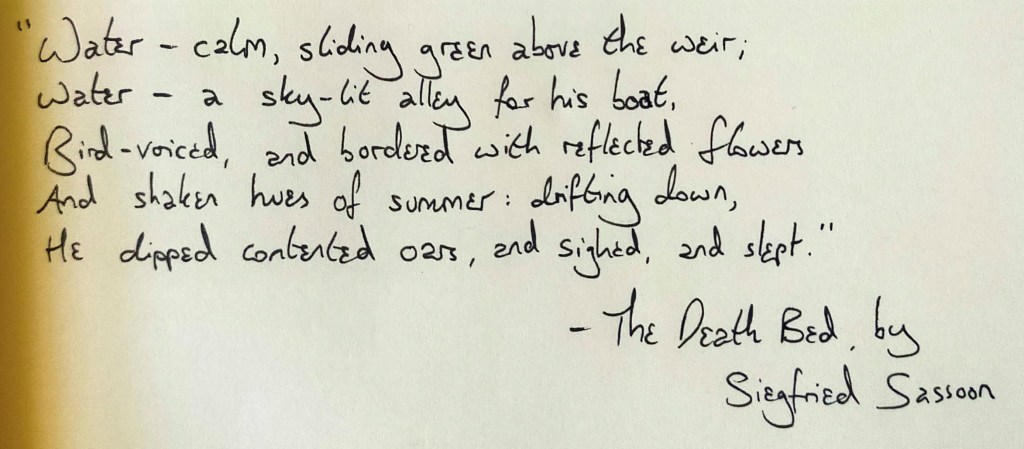 "Water - calm, sliding green above the weir;
Water - a sky-lit alley for his boat,
Bird-voiced, and bordered with reflected flowers
And shaken hues of summer: drifting down,
He dipped contented oars, and sighed, and slept."
- The Death Bed, by
Siegfried Sassoon